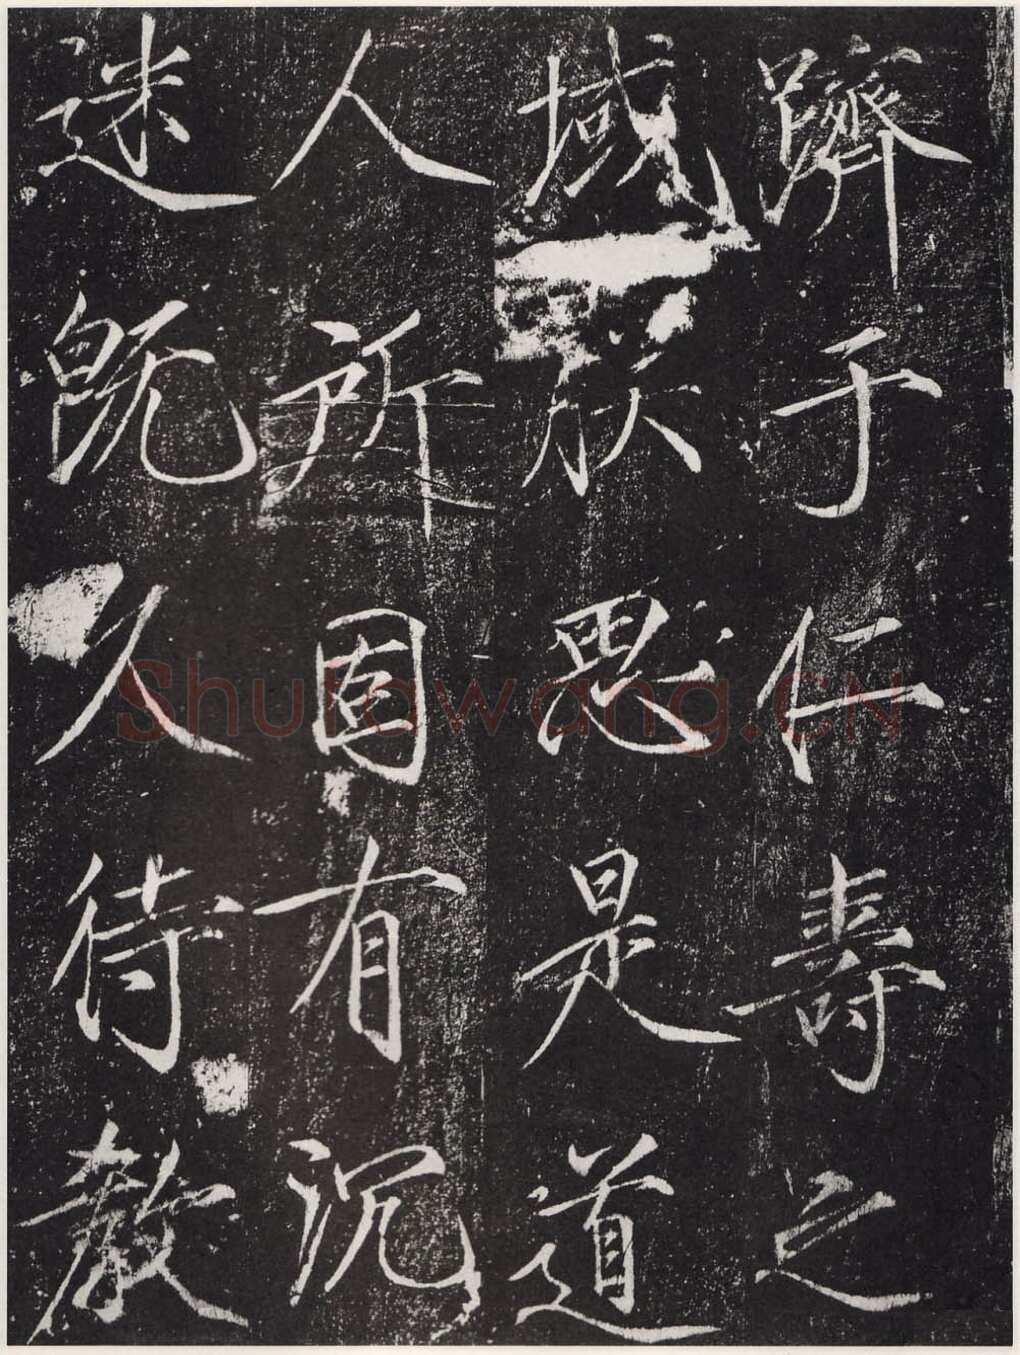 躋于仁壽之
域朕思是道
人所固有沉
迷既久待教
Shufawang.CN